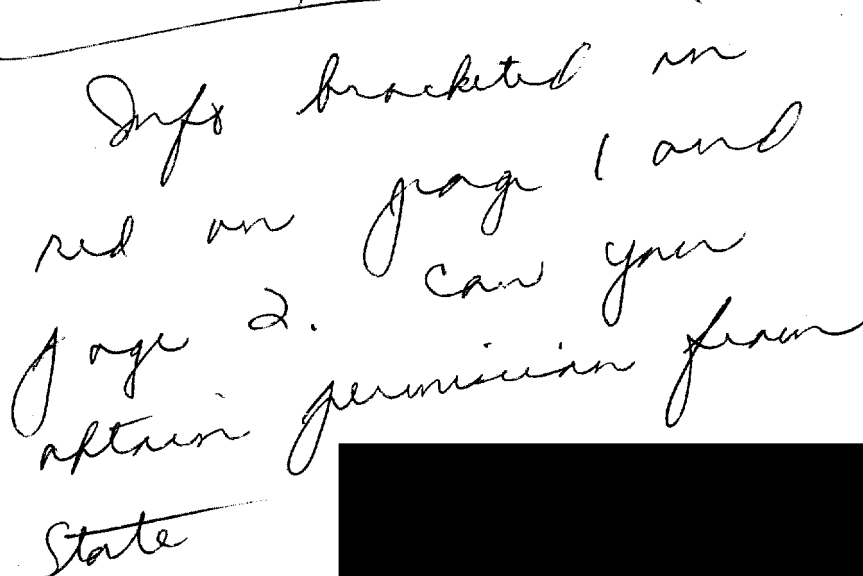 Info bracketed in
red on page 1 and
page 2. Can you
obtain permission from
State